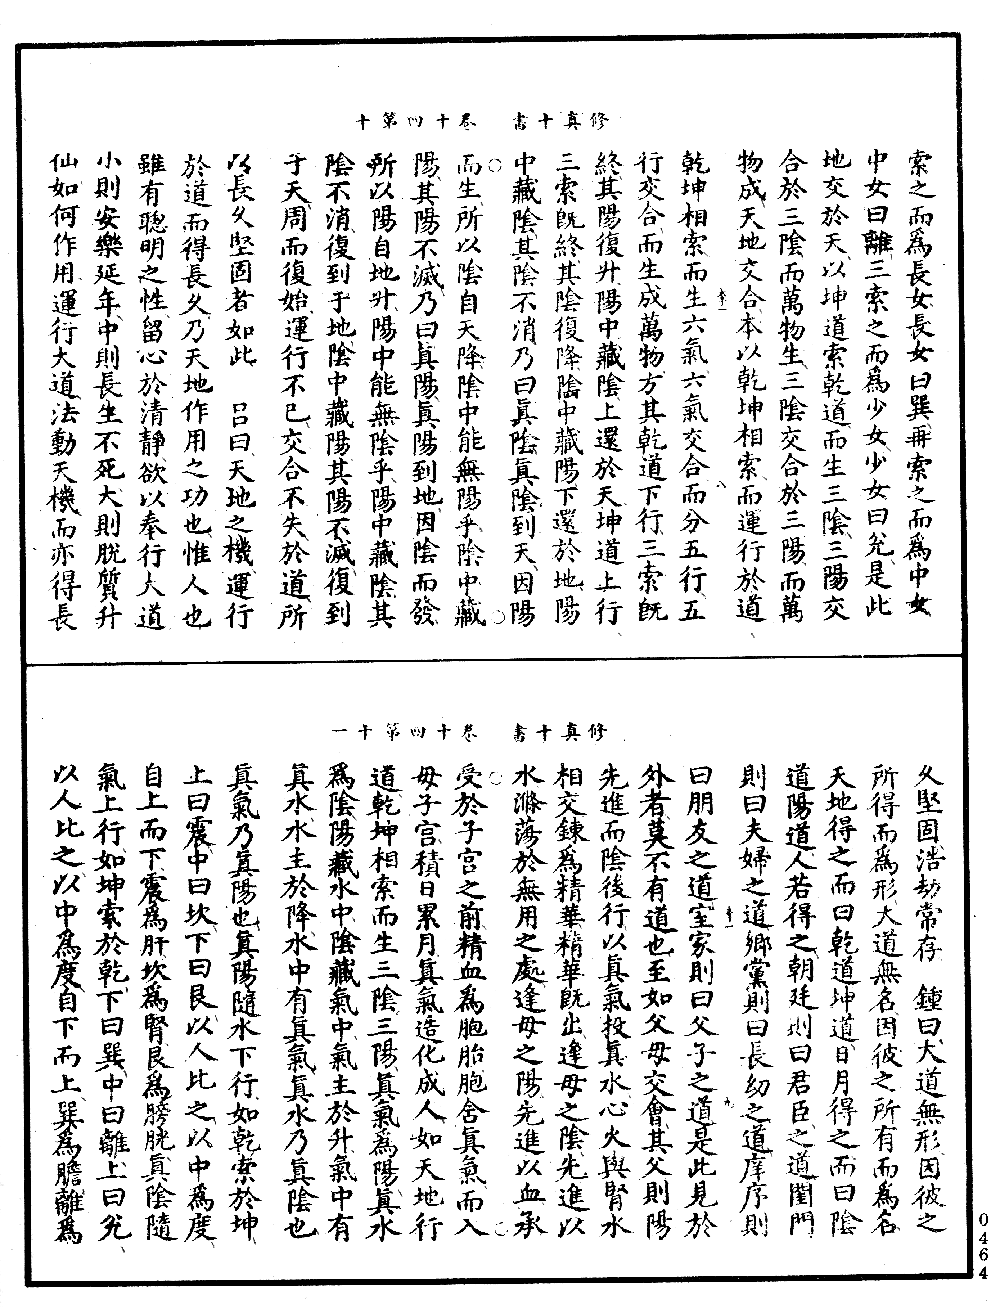 修真十書　卷十四第十
索之而為長女長女曰巽再索之而為中女
中女曰離三索之而為少女少女曰兌是此
地交於天以坤道索乾道而生三陰三陽交
合於三陰而萬物生三陰交合於三陽而萬
物成天地交合本以乾坤相索而運行於道
乾坤相索而生六氣六氣交合而分五行五
行交合而生成萬物方其乾道下行三索旣
終其陽復升陽中藏陰上還於天坤道上行
三索旣終其陰復降陰中藏陽下還於地陽
中藏陰其陰不消乃曰眞陰眞陰到天因陽
而生所以陰自天降陰中能無陽乎陰中藏
陽其陽不滅乃曰眞陽眞陽到地因陰而發
所以陽自地升陽中能無陰乎陽中藏陰其
陰不消復到于地陰中藏陽其陽不滅復到
于天周而復始運行不已交合不失於道所
以長久堅固者如此　呂曰天地之機運行
於道而得長久乃天地作用之功也惟人也
雖有聰明之性留心於清靜欲以奉行大道
小則安樂延年中則長生不死大則脫質升
仙如何作用運行大道法動天機而亦得長
修真十書　卷十四第十一
久堅固浩劫常存　鍾曰大道無形因彼之
所得而為形大道無名因彼之所有而為名
天地得之而曰乾道坤道日月得之而曰陰
道陽道人若得之朝廷則曰君臣之道閨門
則曰夫婦之道鄉黨則曰長幼之道庠序則
曰朋友之道室家則曰父子之道是此見於
外者莫不有道也至如父母交會其父則陽
先進而陰後行以真氣投真水心火與腎水
相交鍊為精華精華旣出逢母之陰先進以
水滌蕩於無用之處逢母之陽先進以血承
受於子宮之前精血為胞胎胞含眞氣而入
母子宮積日累月眞氣造化成人如天地行
道乾坤相索而生三陰三陽眞氣為陽眞水
為陰陽藏水中陰藏氣中氣主於升氣中有
眞水水主於降水中有眞氣眞水乃眞陰也
眞氣乃眞陽也眞陽隨水下行如乾索於坤
上曰震中曰坎下曰艮以人比之以中為度
自上而下震為肝坎為腎艮為膀胱眞陰隨
氣上行如坤索於乾下曰巽中曰離上曰兌
以人比之以中為度自下而上巽為膽離為
0464